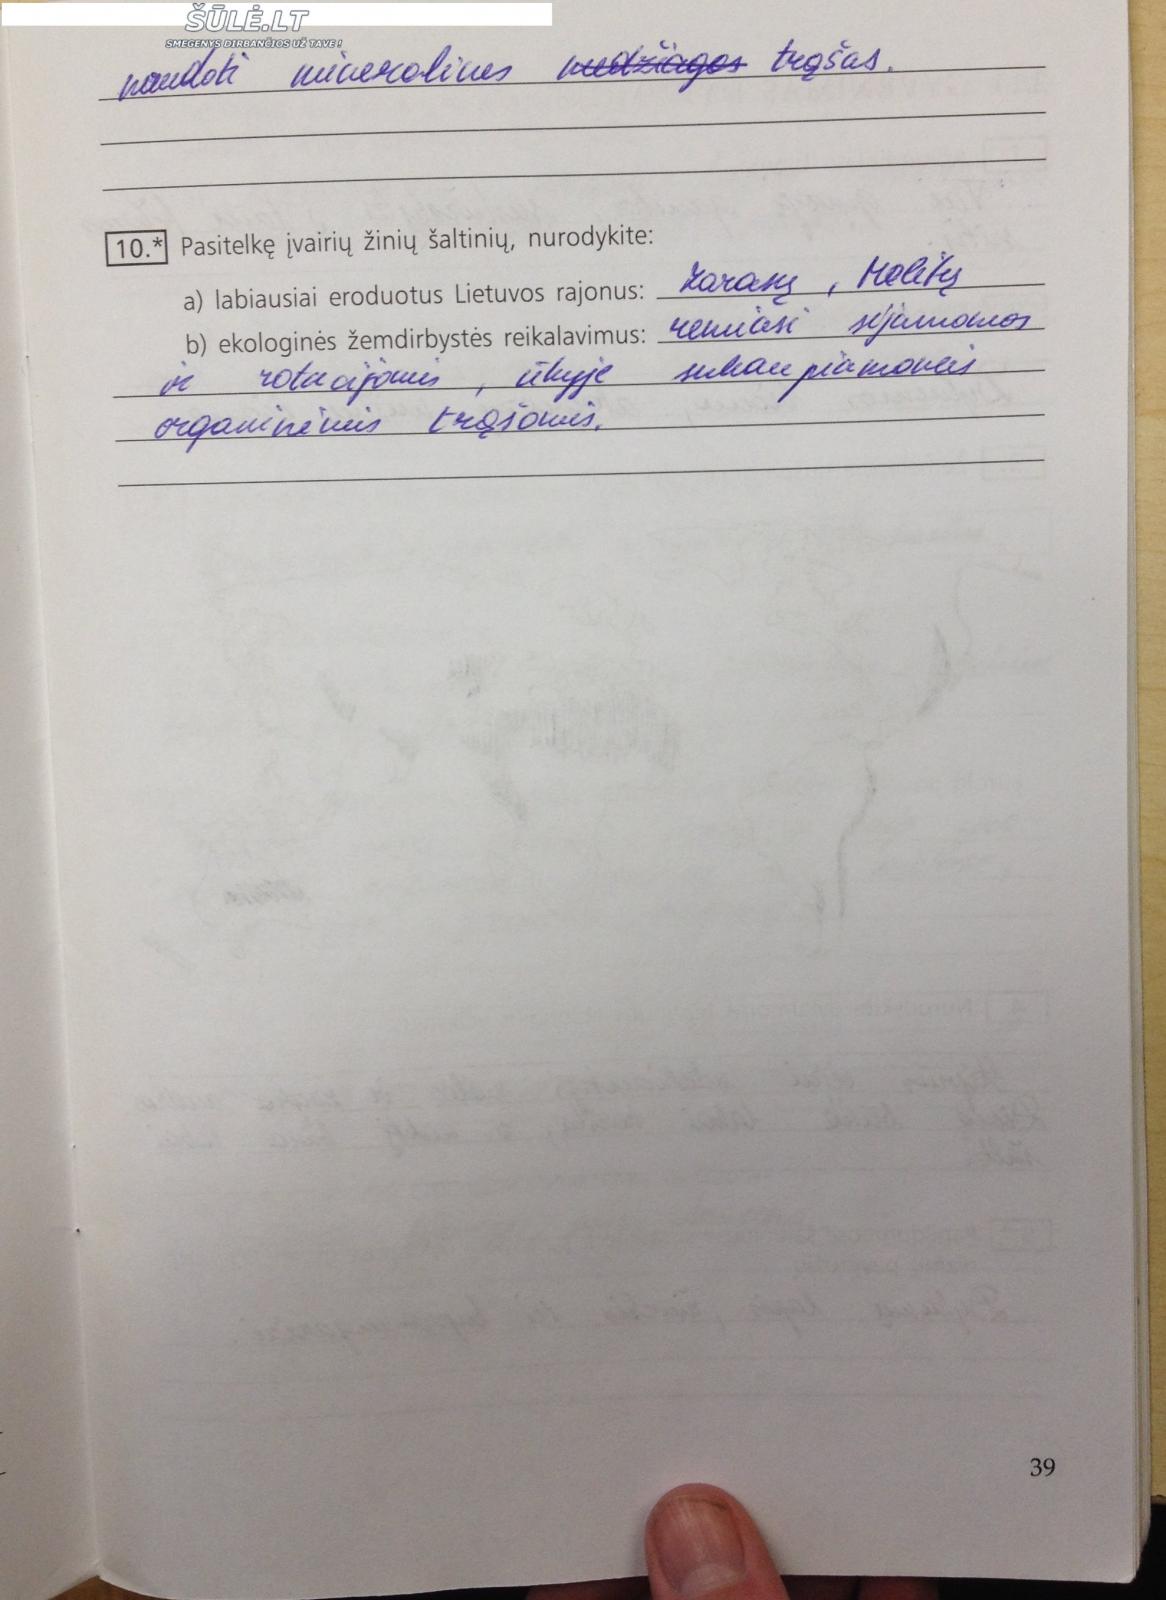 ŠŪLĖ.LT
SMEGENYS DIRBANČIOS UŽ TAVE!
naudoti mineralines medžiagas trąšas.
10.* Pasitelkę įvairių žinių šaltinių, nurodykite:
a) labiausiai eroduotus Lietuvos rajonus: Zarasų, Molėtų
b) ekologinės žemdirbystės reikalavimus: remiasi sėjamomos
ir rotacijomis, ūkyje sukaupiamomis
organinėmis trąšomis.
39